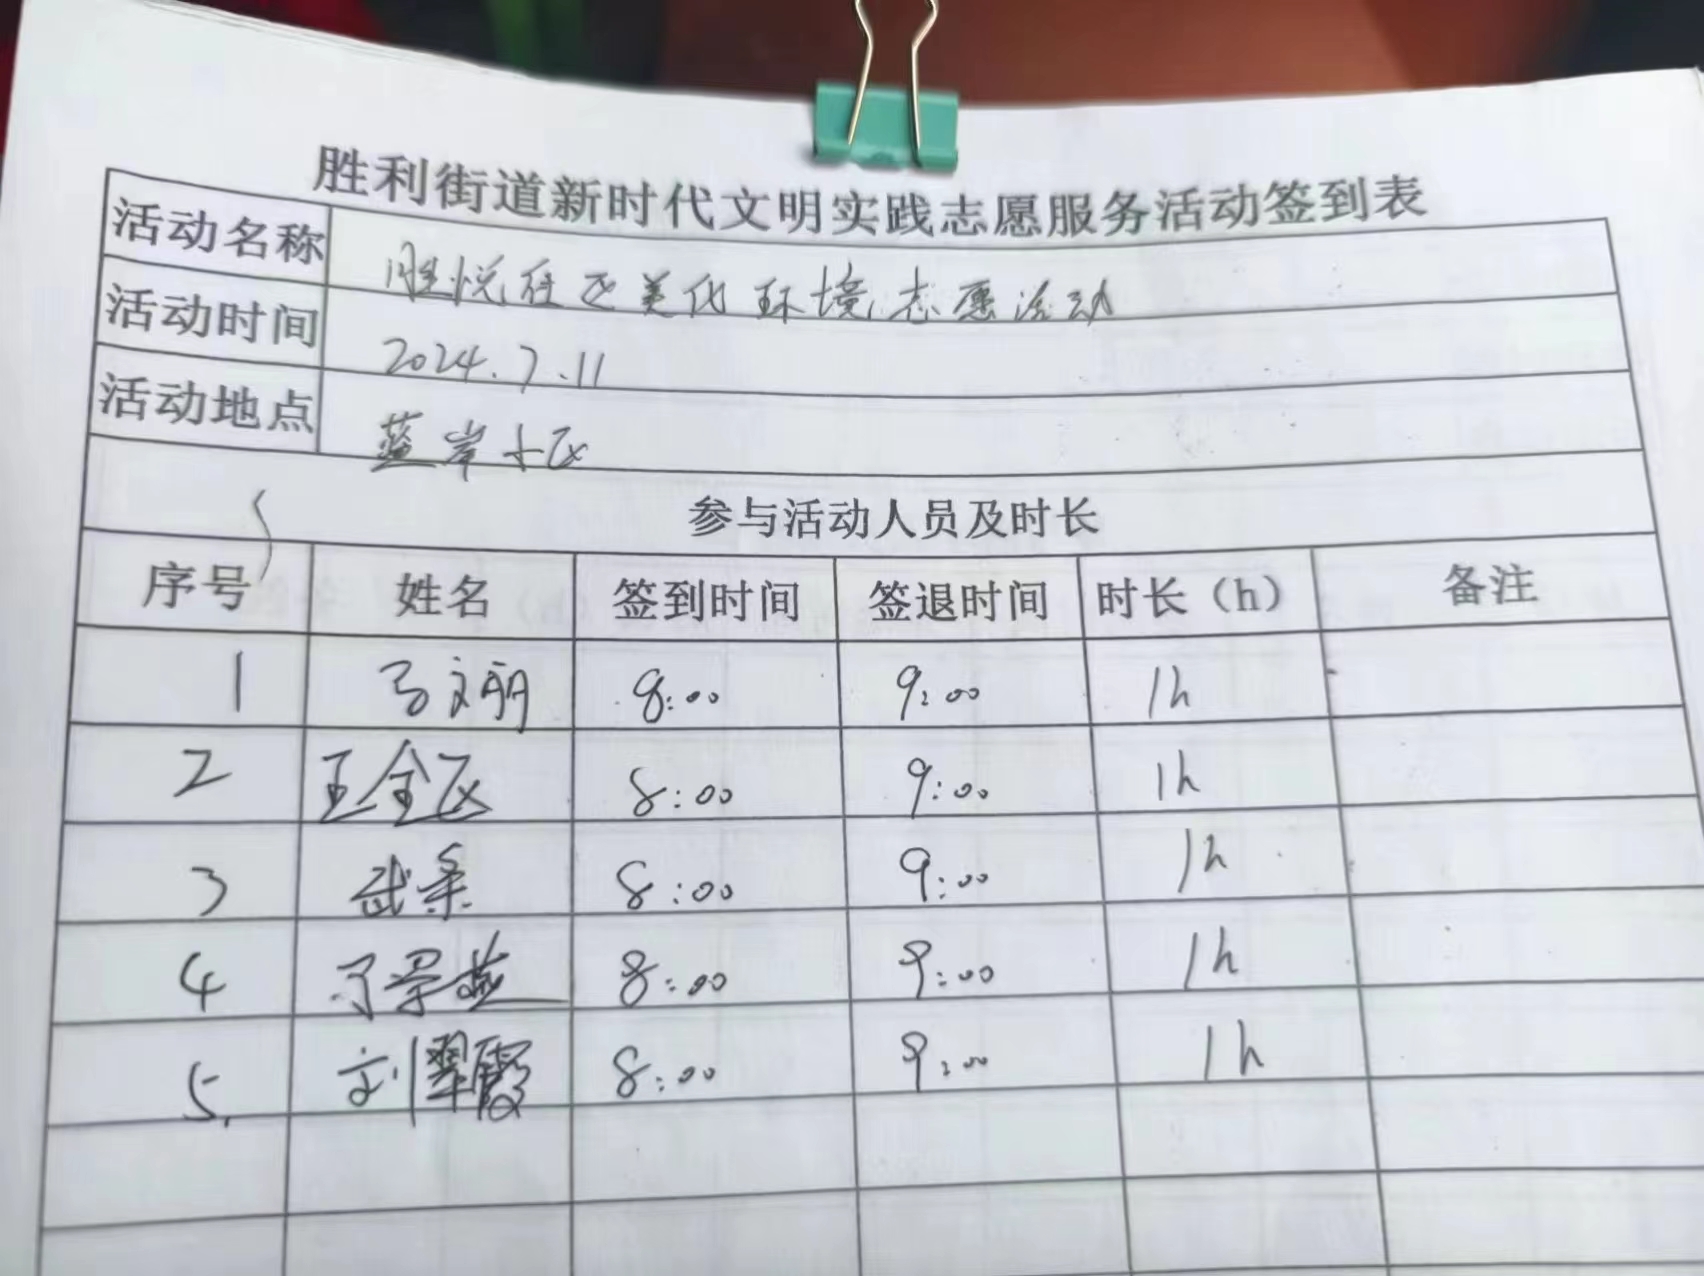 胜利街道新时代文明实践志愿服务活动签到表
活动名称 胜悦社区美化环境志愿活动
活动时间 2024.7.11
活动地点 蓝岸小区
参与活动人员及时长
序号 姓名 签到时间 签退时间 时长（h） 备注
1 马文丽 8:00 9:00 1h
2 王全区 8:00 9:00 1h
3 武柔 8:00 9:00 1h
4 8:00 9:00 1h
5. 刘翠霞 8:00 9:00 1h